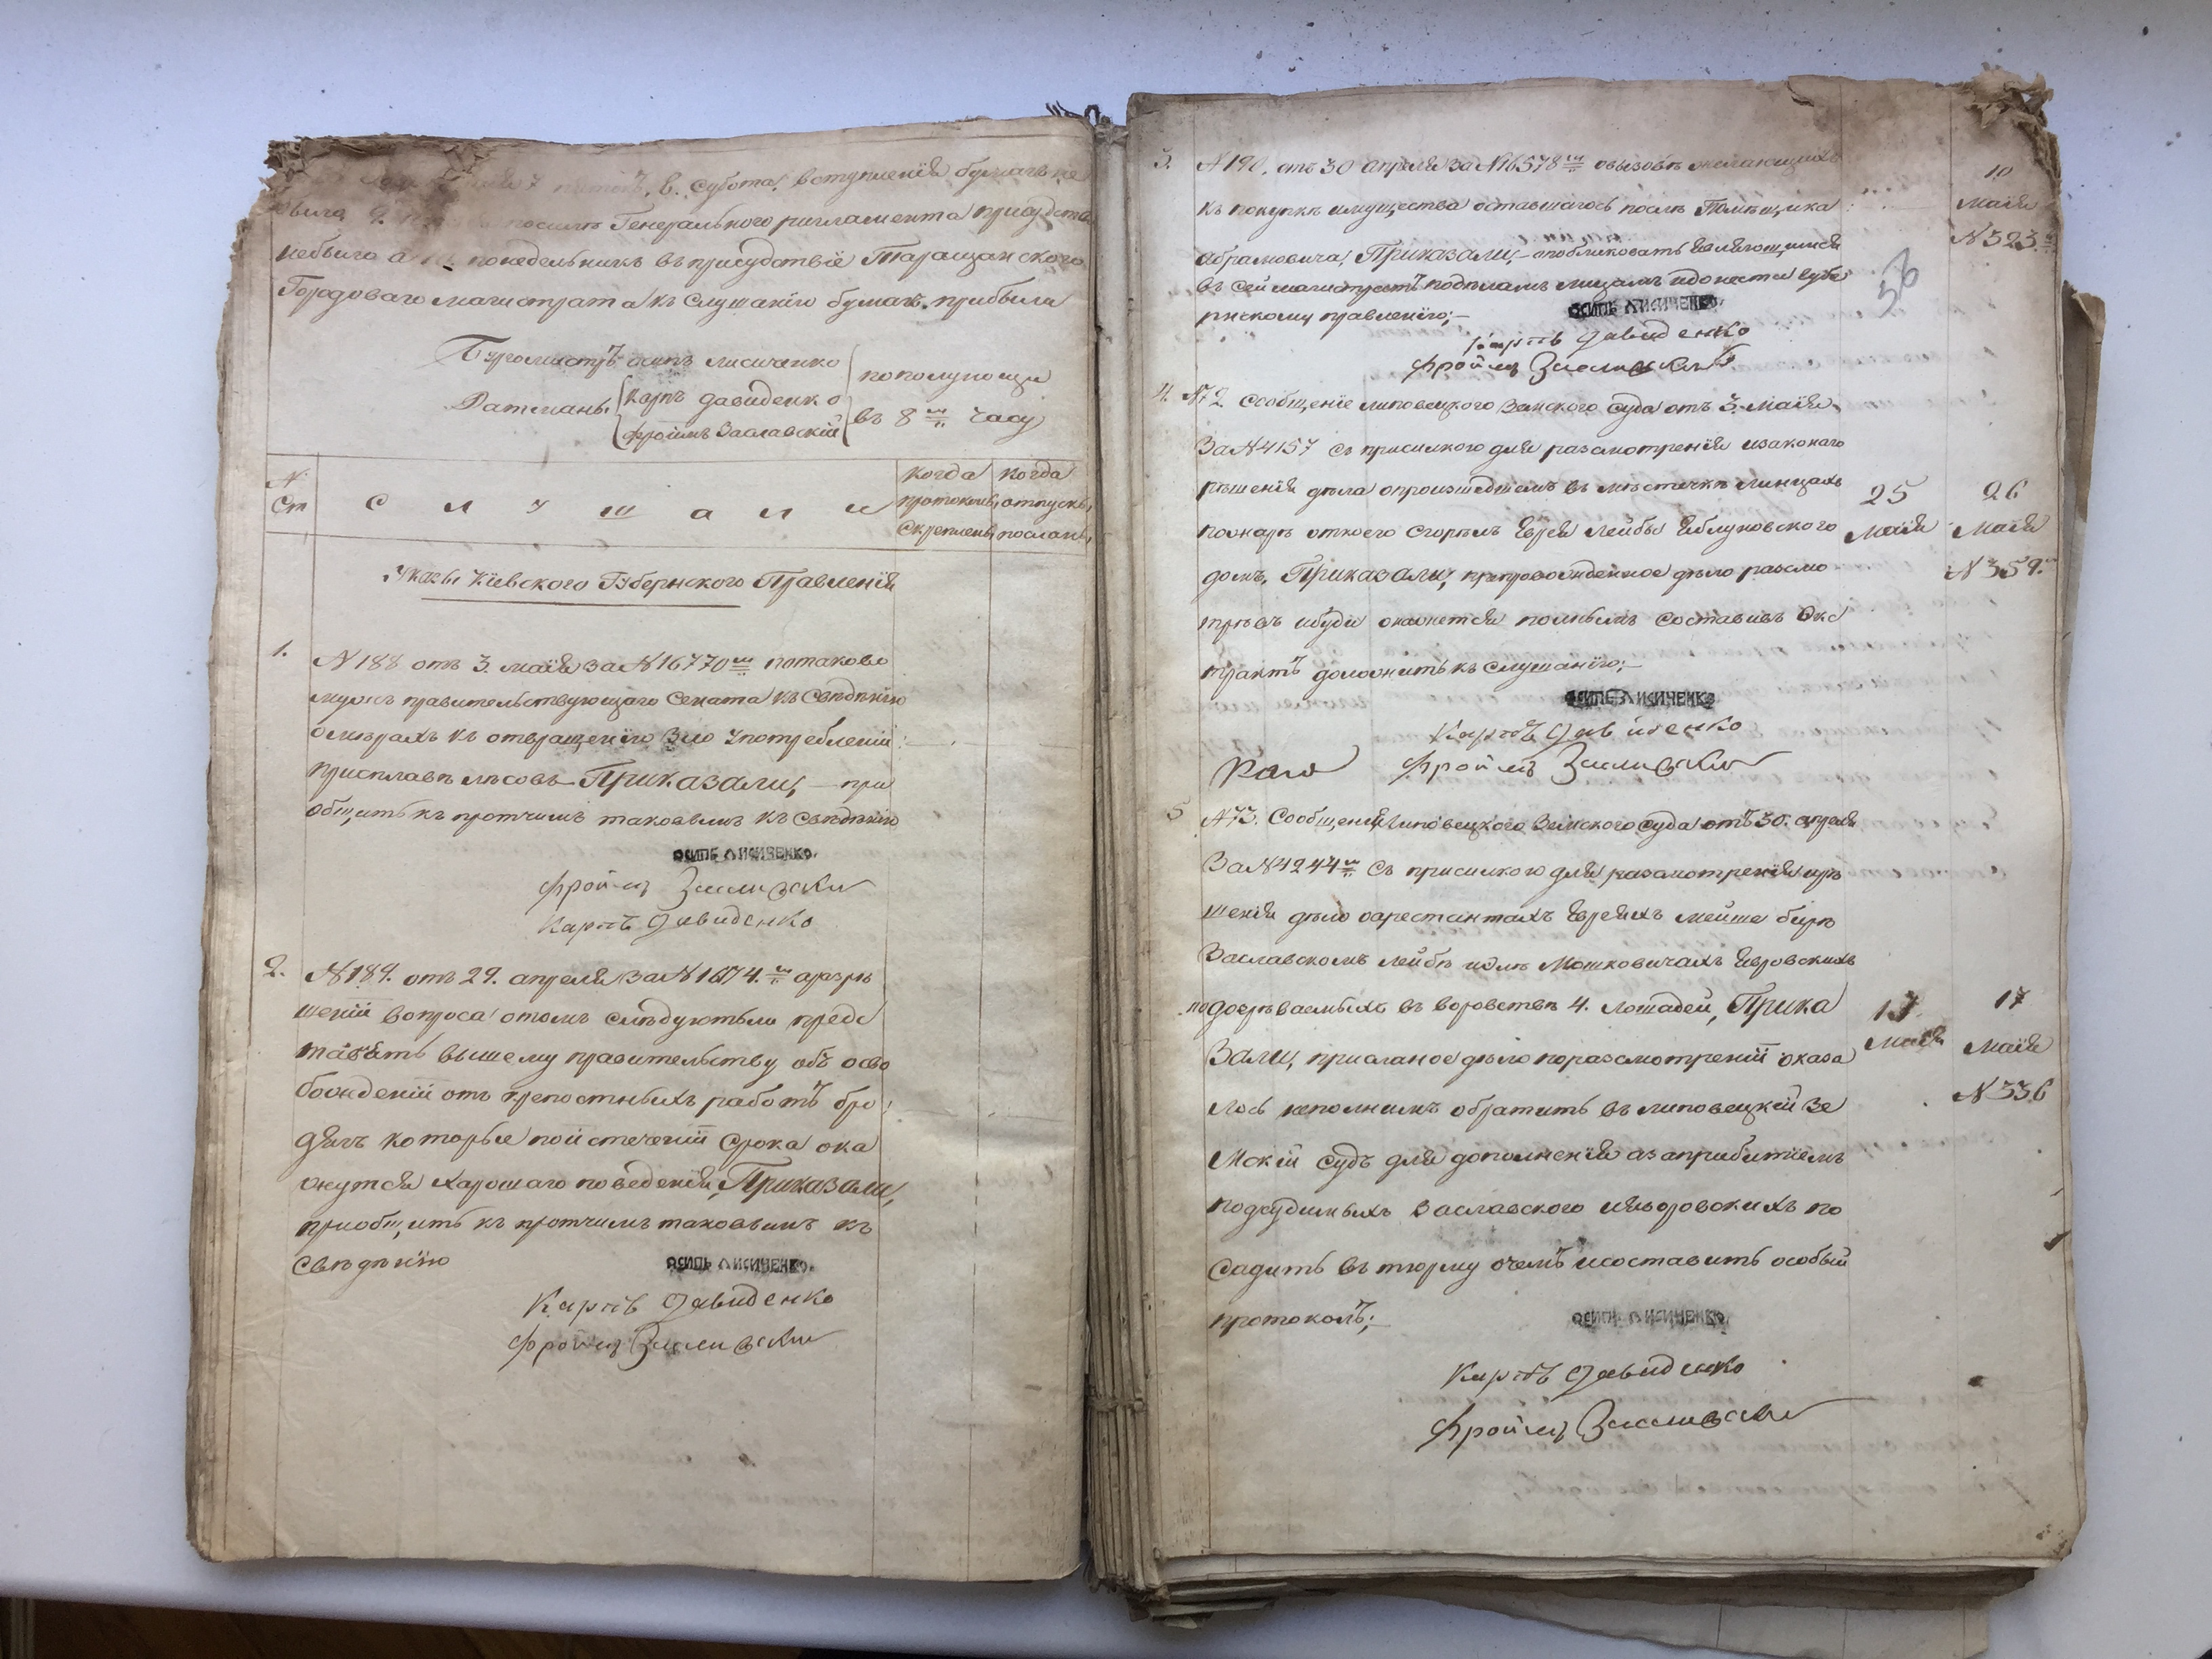 7 пятокъ, 8. субота, вступленія бумагъ не
было 9. посилѣ Генеральнаго регламента присудствія
небыло а 10. понедельникъ въ присудствіе Таращанского
Городоваго магистрата къ слушанію бумагъ прибыли
Бурмистръ осипъ лисиченко
пополуночи
Ратманы карпъ давиденко
въ 8м часу
фроимъ Заславскій
№ Ст
с л у ш а л и
когда протоколъ скрепленъ
когда отпускъ посланъ
Указы Кіевского Губернского Правленія
1.
№188 отъ 3. маія за №16770м потаково
муожъ правительствующаго Сената къ свѣдѣнію
омѣрахъ къ отвращенію Зло употребленій
присплавѣ лѣсовъ Приказали, — при
общить къ протчимъ таковымъ къ свѣдѣнію
ОСИПЪ ЛИСИЧЕНКО.
фроимъ Заславски
Карпъ Давиденко
2.
№189. отъ 29. апреля за №1674.м оразрѣ
шеніи вопроса отомъ слѣдуетъли предс
тавлять вышему правительству объ осво
божденіи отъ крепостныхъ работъ бро
дягъ которые поистеченіи срока ока
жутся харошаго поведенія, Приказали,
приобщить къ протчимъ таковымъ къ
свѣдѣнію
ОСИПЪ ЛИСИЧЕНКО.
Карпъ Давиденко
фроимъ Заславски
3.
№190. отъ 30 апреля за №16578м овызовѣ желающихъ
къ покупкѣ имущества оставшагось послѣ Помѣщика
абрамовича, Приказали, — опобликовать являющимся
въ сей магистратъ подпламъ лицамъ идонести губе
рнскому правленію; —
10
маія
№323.
56
ОСИПЪ ЛИСИЧЕНКО.
Карпъ Давиденко
фроимъ Заславски
4.
№72. сообщеніе липовецкого Земского суда отъ 3. маія
За №4157 съ присилкого для разсмотренія изаконаго
рѣшенія дѣла опроизшедшемъ въ мѣстечкѣ линцахъ
пожарѣ откоего сгорѣлъ Еврея лейбы Яблуновского
домъ, Приказали, препровожденное дѣло разсмо
трѣвъ ибуди окажется полнымъ составивъ Экс
трактъ доложить къ слушанію; —
25
маія
26
маія
№359.
ОСИПЪ ЛИСИЧЕНКО.
Карпъ Давиденко
фроимъ Заславски
5
№73. Сообщенія липовецкого Земского суда отъ 30. апреля
За №4244м съ присилкого для разсмотренія ирѣ
шенія дѣло оарестантахъ Евреяхъ мейше берѣ
Заславскомъ лейбѣ иолѣ Мошковичахъ Яворовскихъ
подозрѣваемыхъ въ воровствѣ 4. лошадей, Прика
зали, присланое дѣло поразсмотреніи оказа
лось неполнимъ обратить въ липовецкій Зе
мскій судъ для дополненія азаприбитіемъ
подсудимыхъ Заславского ияворовскихъ по
садить въ тюрму очемъ исоставить особый
протоколъ; —
17
маія
17
маія
№336
ОСИПЪ ЛИСИЧЕНКО.
Карпъ Давиденко
фроимъ Заславски